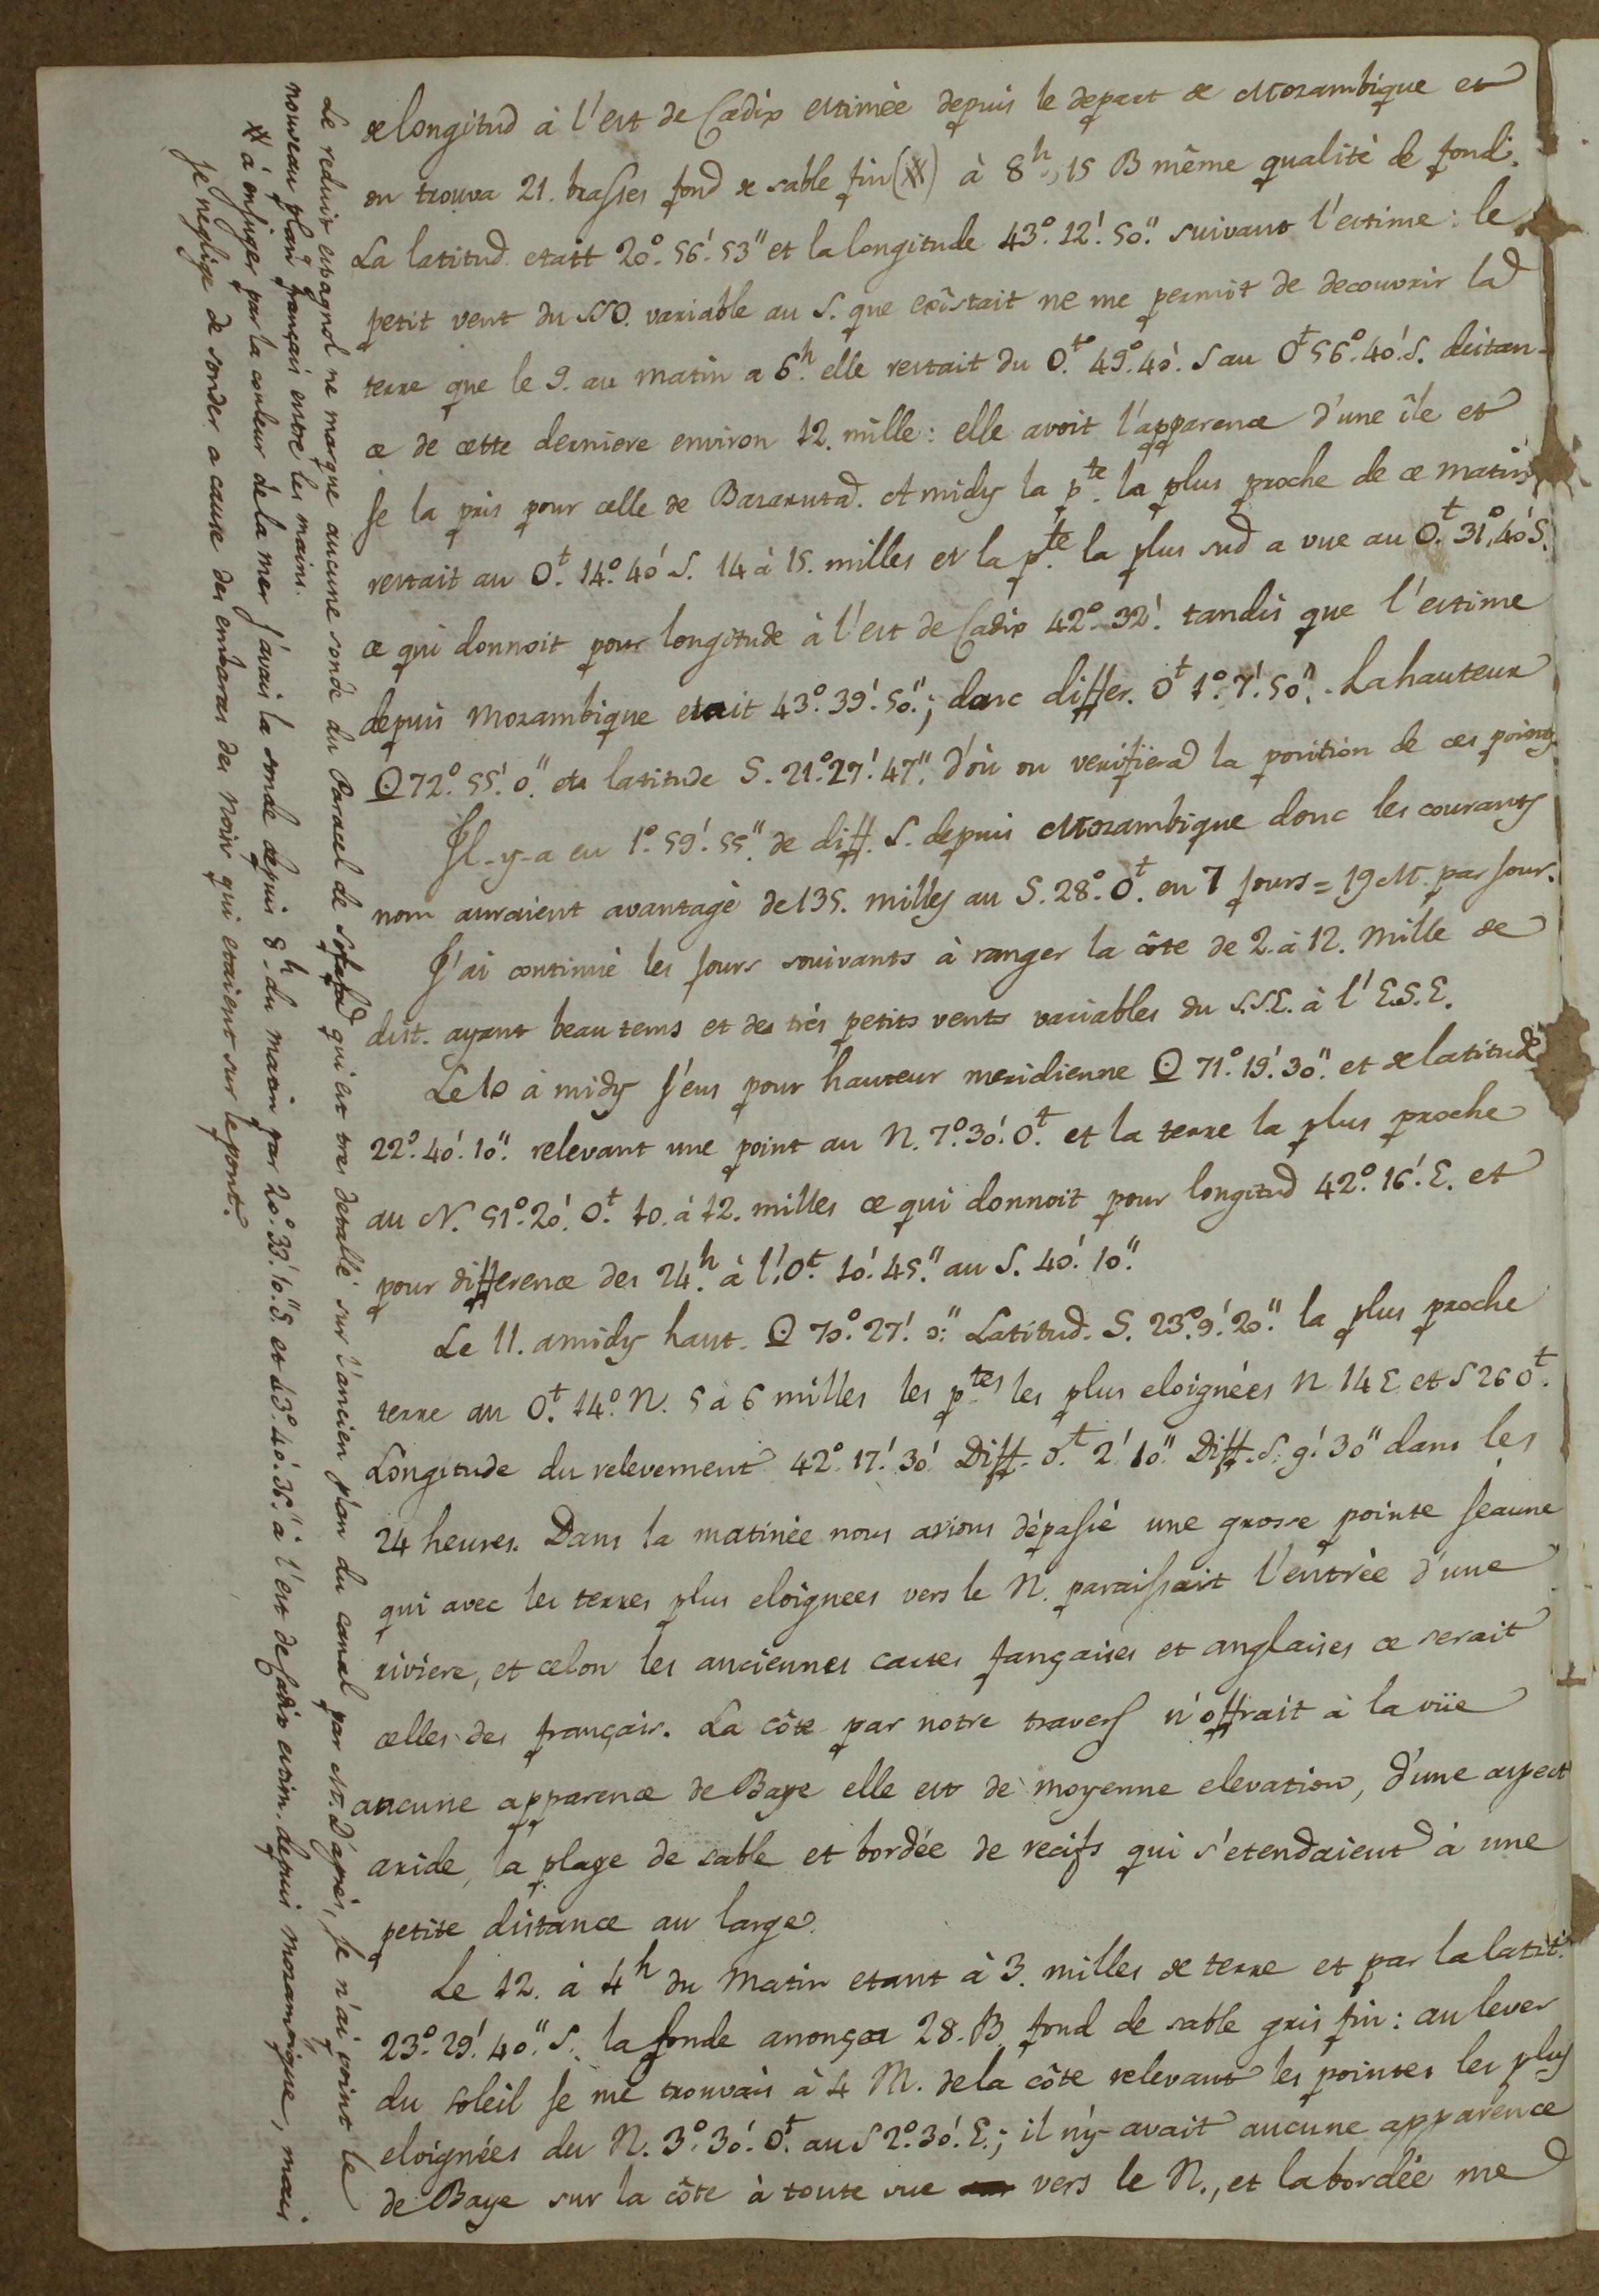 de longitud à l'est de Cadix estimée depuis le depart de Mozambique et
on trouva 21. brasses fond de sable fin (※) à 8h, 15 B même qualité de fond.
La latitud. etait 20°. 56'. 53" et la longitude 43°. 12'. 50". suivant l'estime : le
petit vent du SSO. variable au S. que existait ne me permit de decouvrir la
terre que le 9. au matin a 6h. elle restait du Ot. 49°. 40'. S au Ot 56°. 40'. S. distan-
ce de cette derniere environ 12. mille : elle avoit l'apparence d'une île et
Je la pris pour celle de Bazaruta. A midy la pte. la plus proche de ce matin
restait au Ot. 14°. 40' S. 14 à 15. milles et la pte. la plus sud a vue au Ot. 31°. 40' S.
ce qui donnoit pour longitude à l'est de Cadix 42°. 32'. tandis que l'estime
depuis Mozambique etait 43°. 39'. 50".; donc differ. Ot 1°. 7'. 50". La hauteur
☉ 72°. 55'. 0". et la latitude S. 21°. 27'. 47". d'où on verifiera la position de ces points
Il-y-a eu 1°. 59'. 55". de diff. S. depuis Mozambique donc les courants
nous auraient avantagé de 135. milles au S. 28°. Ot. en 7 jours = 19 M. par jour.
J'ai continué les jours souivants à ranger la côte de 2. à 12. mille de
dist. ayant beau tems et des très petits vents variables du S.S.E. à l'E.S.E.
Le 10 à midy j'eus pour hauteur meridienne ☉ 71°. 19'. 30". et de latitude
22°. 40'. 10". relevant une point au N. 7°. 30'. Ot. et la terre la plus proche
au N. 51°. 20'. Ot. 10. à 12. milles ce qui donnoit pour longitud 42°. 16'. E. et
pour difference des 24h. à l'Ot. 10'. 45". au S. 40'. 10".
Le 11. a midy haut. ☉ 70°. 27'. 0". Latitud. S. 23°. 9'. 20". la plus proche
terre au Ot. 14°. N. 5 a 6 milles les ptes les plus eloignées N 14 E et S 26 Ot.
Longitude du relevement 42°. 17'. 30' Diff. Ot 2' 10". Diff. S. 9'. 30" dans les
24 heures. Dans la matinée nous avions dépassé une grosse pointe jeaune
qui avec les terres plus eloignees vers le N. paraissait l'entrée d'une
riviere, et celon les anciennes cartes fançaises et anglaises ce serait
celles des français. La côte par notre travers n'offrait à la vüe
aucune apparence de Baye elle est de moyenne elevation, d'une aspect
aride, la plage de sable et bordée de recifs qui s'etendaient à une
petite distance au large.
Le 12. à 4h du matin etant à 3. milles de terre et par la latit.
23°. 29'. 40". S. la sonde anonçoa 28. B fond de sable gris fin : au lever
du soleil Je me trouvais à 4 M. de la côte relevant les pointes les plus
eloignées du N. 3°. 30'. Ot. au S 2°. 30'. E.; il n'y-avait aucune apparence
de Baye sur la côte à toute vue vers le N., et la bordée me
Le reduit espagnol ne marque aucune sonde du Paracel de Sofala qui est tres detallé sur l'ancien plan du canal par M. D'après, Je n'ai point le
nouveau plan français entre les mains.
※ à en juger par la couleur de la mer j'avais la sonde depuis 8h. du matin par 20°. 33'. 10". S. et 43°. 40'. 36". à l'est de Cadix estim. depuis mozambique, mais
Je neglige de sonder a cause des embaras des noirs qui etaient sur le pont.